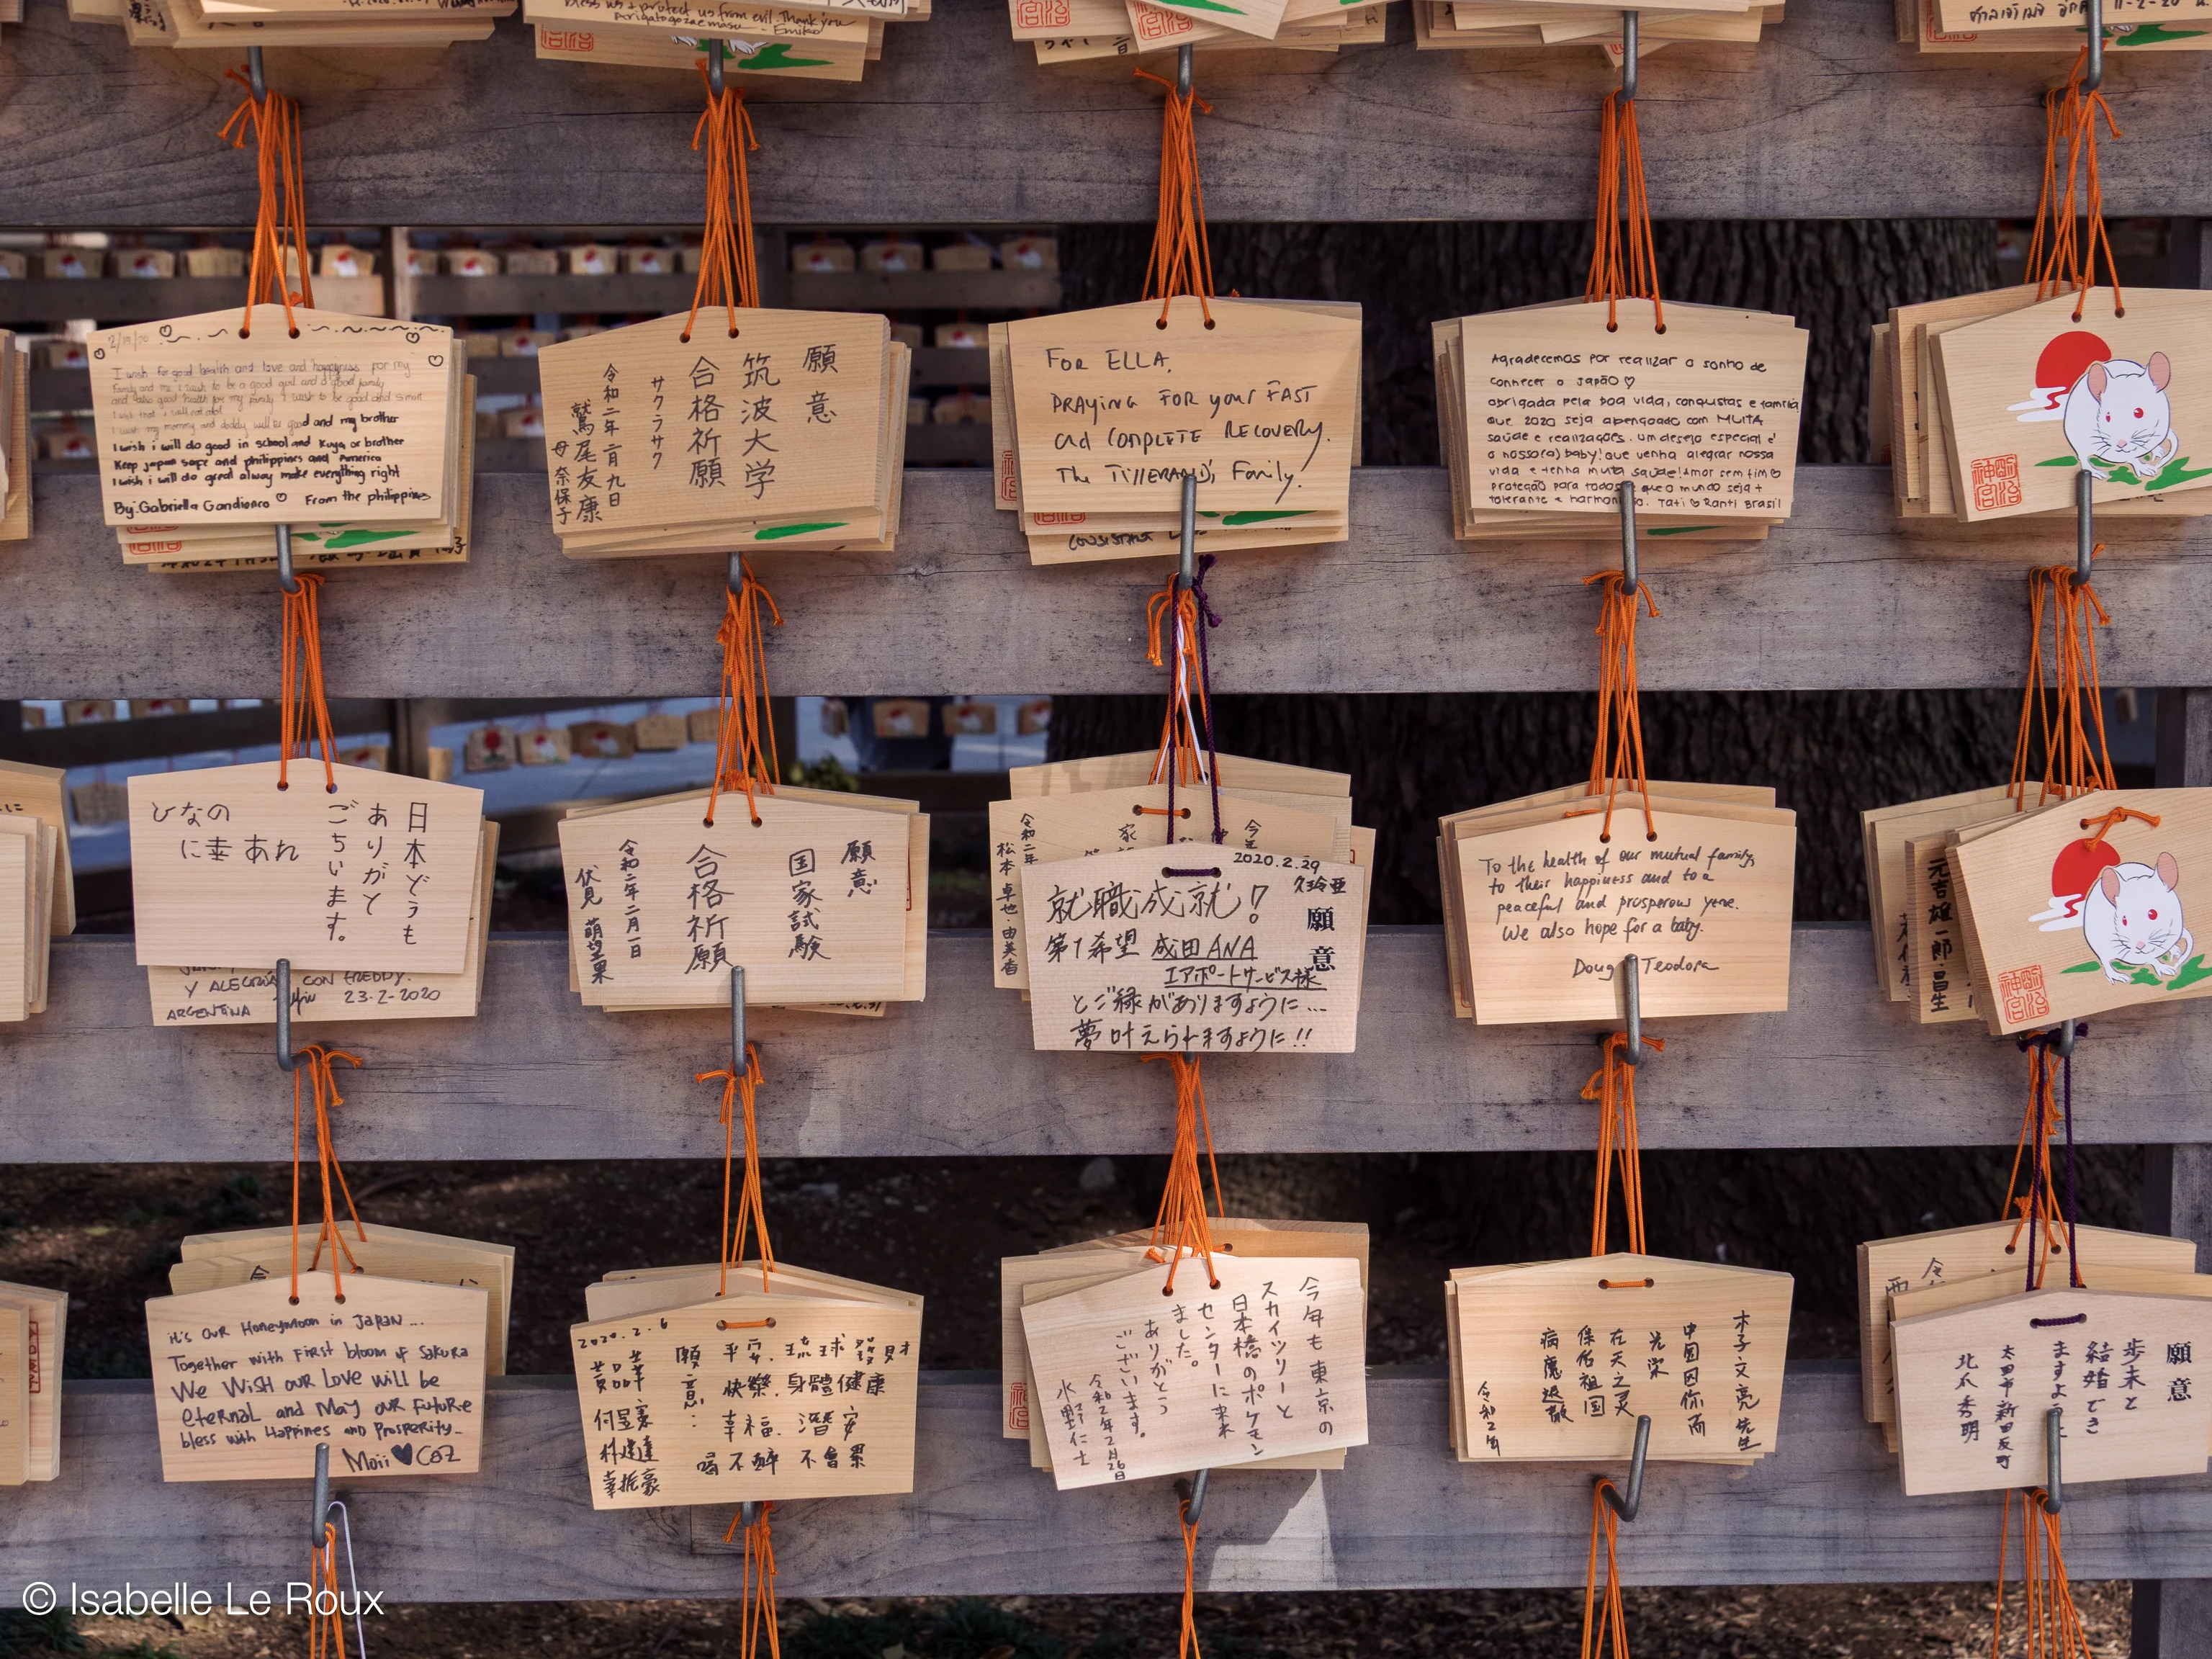 bless us & protect us from evil. Thank you
Arigato gozaemasu
- Emiko
I wish for good health and love and happyness for my
family and me i wish to be a good girl and a good family
and also good health for my family I wish to be good and smart
I wish my mommy and daddy will be good and my brother
I wish i will do good in school and Kuya or brother
Keep japan safe and philippines and America
I wish i will do great alway make everything right
By: Gabriella Gandionco From the philippines
願意
筑波大学
合格祈願
サクラサク
令和二年二月九日
鷲尾友康
母 奈保子
FOR ELLA,
PRAYING FOR your FAST
and COMPLETE RECOVERY.
The Family.
Agradecemos por realizar o sonho de
conhecer o Japão ♡
obrigada pela boa vida, conquistas e família
que 2020 seja abençoado com MUITA
saúde e realizações. um desejo especial é
o nosso(a) baby! que venha alegrar nossa
vida e tenha muita saúde! Amor sem fim ♡
proteção para todos que o mundo seja +
tolerante e harmonioso. Tati ♡ Ranti Brasil
明治
神宮
日本どうも
ありがと
ごちいます。
ひなの
に幸あれ
Y ALEGRÍA CON FREDDY.
23-2-2020
ARGENTINA
願意
国家試験
合格祈願
令和二年二月一日
伏見 萌望果
令和二年
松本卓也・由美香
2020.2.29
久玲亜
願意
就職成就!
第1希望 成田ANA
エアポートサービス様
とご縁がありますように…
夢叶えられますように!!
To the health of our mutual family,
to their happiness and to a
peaceful and prosperous year.
We also hope for a baby.
Doug Teodora
元吉雄一郎・昌生
明治
神宮
it's our Honeymoon in Japan...
Together with First bloom of Sakura
We Wish our Love will be
eternal and May our Future
bless with Happines and Prosperity.
Moii ♥ Coz
2020.2.6
願意:
平安. 琉球發財
快樂. 身體健康
幸福.
喝不醉 不會累
今年も東京の
スカイツリーと
日本橋のポケモン
センターに来
ました。
ありがとう
ございます。
令和2年2月26日
水野仁士
木子文亮先生
中国因你而
光荣
在天之灵
保佑祖国
病魔退散
令和2年
願意
歩未と
結婚でき
ますように
太田市新田反町
北爪秀明
© Isabelle Le Roux